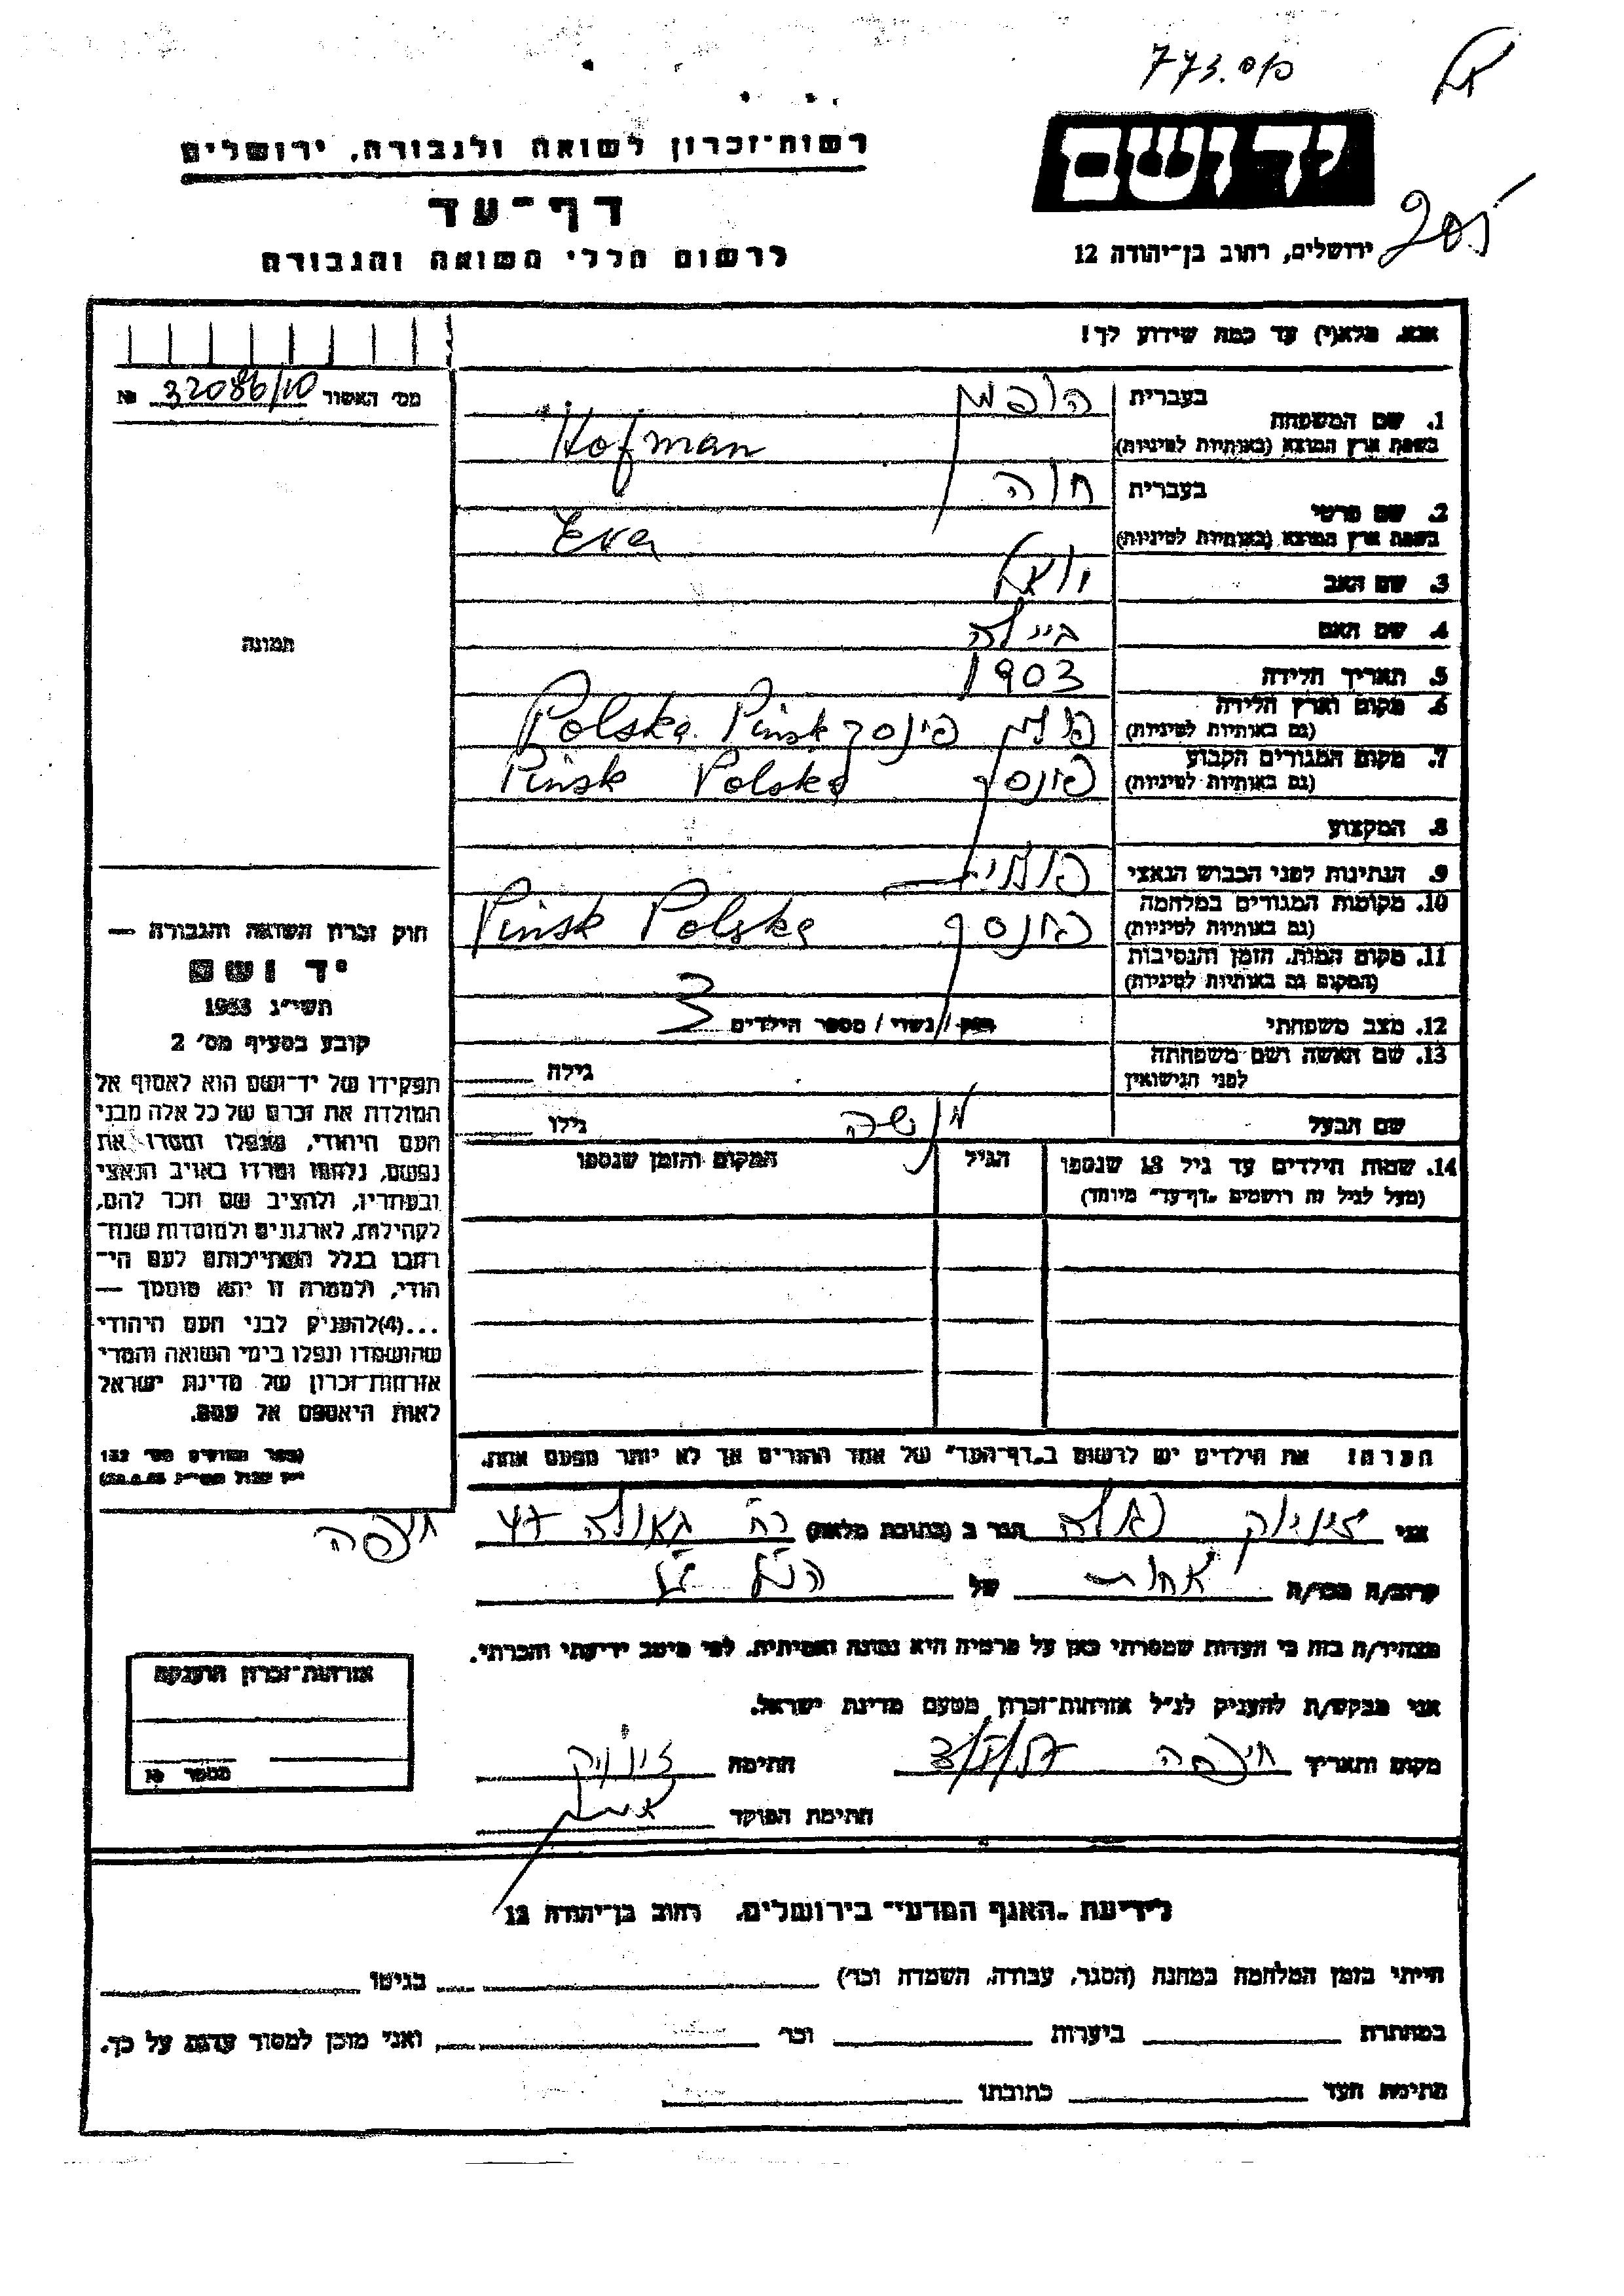 רשות־זכרון לשואה ולגבורה, ירושלים
דף־עד
לרשום חללי השואה והגבורה
יד ושם
ירושלים, רחוב בן־יהודה 12
אנא, מלא(י) עד כמה שידוע לך!
מס' האשור 32086/10 №
1. שם המשפחה
בעברית הופמן
בשפת ארץ המוצא (באותיות לטיניות) Hofman
2. שם פרטי
בעברית חוה
בשפת ארץ המוצא (באותיות לטיניות) Eva
3. שם האב יואל
4. שם האם ביילה
5. תאריך הלידה 1903
6. מקום וארץ הלידה
(גם באותיות לטיניות) פולין פינסק Polska Pinsk
7. מקום המגורים הקבוע
(גם באותיות לטיניות) פינסק Pinsk Polska
8. המקצוע
9. הנתינות לפני הכבוש הנאצי פולנית
10. מקומות המגורים במלחמה
(גם באותיות לטיניות) פינסק Pinsk Polska
11. מקום המות, הזמן והנסיבות
(המקום גם באותיות לטיניות)
12. מצב משפחתי רווק / נשוי / מספר הילדים 3
13. שם האשה ושם משפחתה
לפני הנישואין גילה
שם הבעל משה גילו
14. שמות הילדים עד גיל 18 שנספו הגיל המקום והזמן שנספו
(מעל לגיל זה רושמים „דף־עד" מיוחד)
תמונה
חוק זכרון השואה והגבורה —
יד ושם
תשי"ג 1953
קובע בסעיף מס' 2
תפקידו של יד־ושם הוא לאסוף אל
המולדת את זכרם של כל אלה מבני
העם היהודי, שנפלו ומסרו את
נפשם, נלחמו ומרדו באויב הנאצי
ובעוזריו, ולהציב שם וזכר להם,
לקהילות, לארגונים ולמוסדות שנח־
רבו בגלל השתייכותם לעם הי־
הודי, ולמטרה זו יהא מוסמך —
...(4)להעניק לבני העם היהודי
שהושמדו ונפלו בימי השואה והמרי
אזרחות־זכרון של מדינת ישראל
לאות היאספם אל עמם.
(ספר החוקים מס' 132
הערה! את הילדים יש לרשום ב„דף־העד" של אחד ההורים אך לא יותר מפעם אחת.
אני הגר ב (כתובת מלאה) רח' גאולה 47 חיפה
קרוב/ה מכר/ה אחות של הנ"ל
מצהיר/ה בזה כי העדות שמסרתי כאן על פרטיה היא נכונה ואמיתית, לפי מיטב ידיעתי והכרתי.
אני מבקש/ת להעניק לנ"ל אזרחות־זכרון מטעם מדינת ישראל.
מקום ותאריך חיפה חתימה
חתימת הפוקד
אזרחות־זכרון הוענקה
מספר №
לידיעת „האגף המדעי" בירושלים, רחוב בן־יהודה 12
הייתי בזמן המלחמה במחנה (הסגר, עבודה, השמדה וכו') בגיטו
במחתרת ביערות וכו' ואני מוכן למסור עדות על כך.
חתימת העד כתובתו